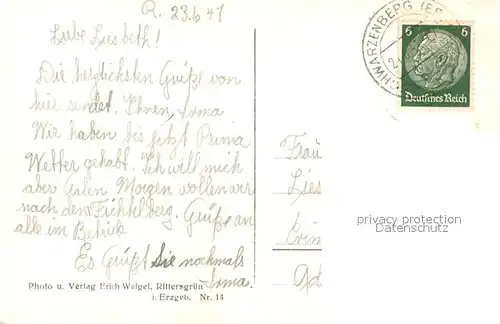 R. 23.6 41
Liebe Liesbeth!
Die herzlichsten Grüße von
hier sendet Ihnen, Irma
Wir haben bis jetzt Prima
Wetter gehabt. Ich will mich
aber Morgen wollen wir
nach dem Fichtelberg. Grüße an
alle im Betrieb
Es Grüßt Sie nochmals
Irma.
Photo u. Verlag Erich Weigel, Rittersgrün
i. Erzgeb. Nr. 14
SCHWARZENBERG (ER
6 6
Deutsches Reich
Frau
Lies
Crim
privacy protection
oldthing.de